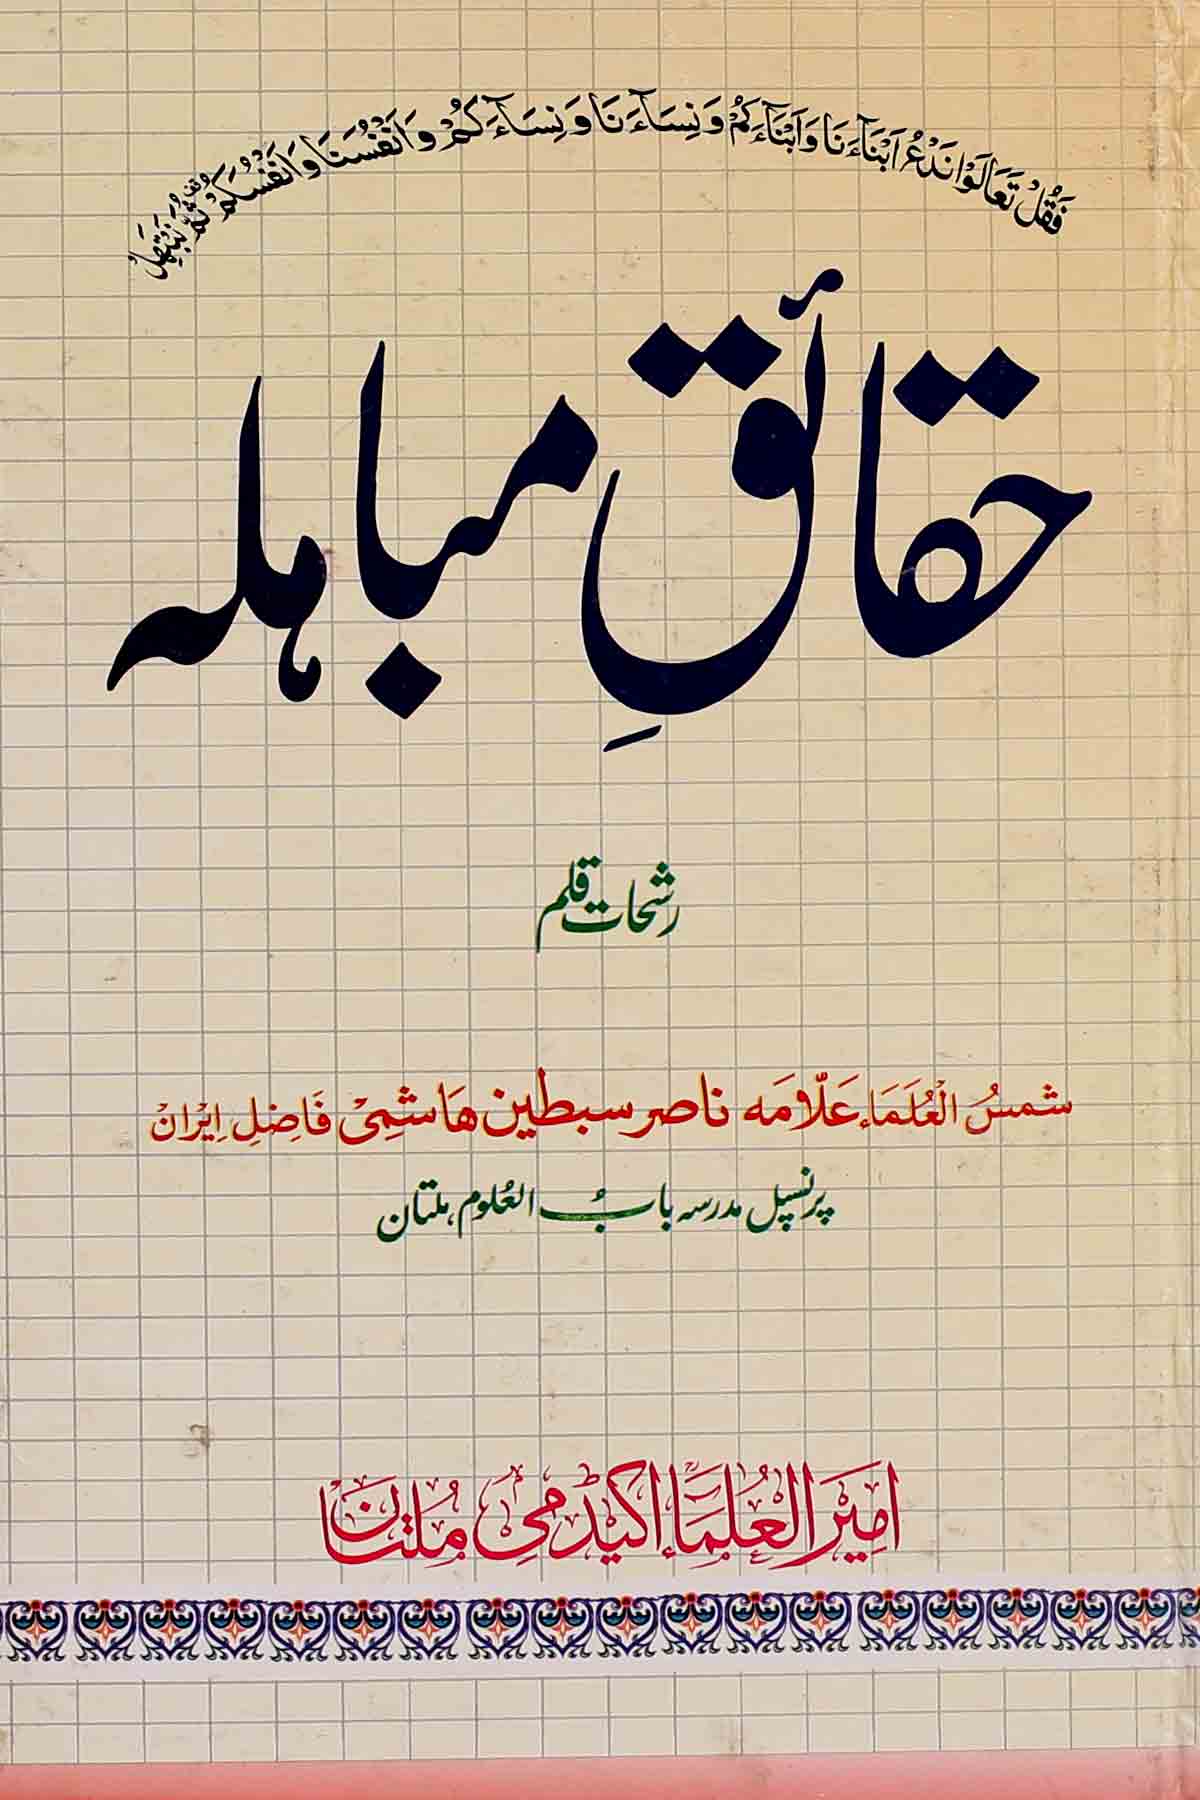 فَقُلْ تَعَالَوْا نَدْعُ اَبْنَآءَنَا وَاَبْنَآءَكُمْ وَنِسَآءَنَا وَنِسَآءَكُمْ وَاَنْفُسَنَا وَاَنْفُسَكُمْ ثُمَّ نَبْتَهِلْ
حقائقِ مباہلہ
رشحات قلم
شمسُ الْعُلَمَاء عَلّامَہ ناصر سبطین ھَاشمِیْ فَاضِلِ اِیْرَانْ
پرنسپل مدرسہ بابُ العُلوم، ملتان
امِیْرَ العُلَمَاء اکیڈمِیْ مُلتَانْ